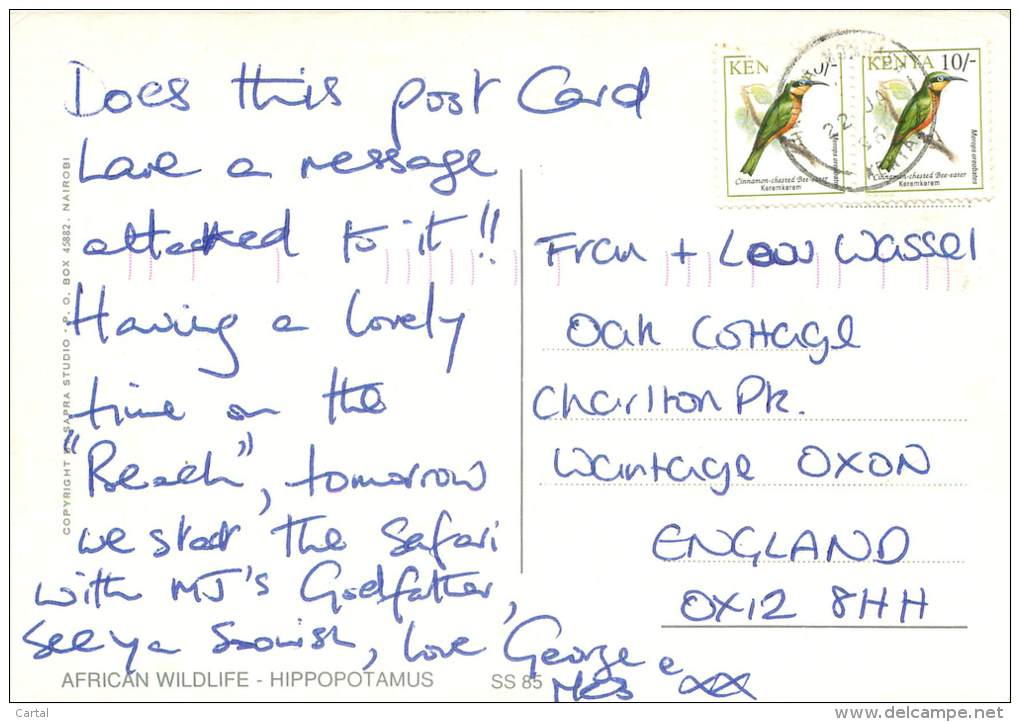 Does this post Card
have a message
attached to it!!
Having a lovely
time on the
"Beach", tomorrow
we start the Safari
with MJ's Godfather,
See ya Soonish, love George
e
xx
AFRICAN WILDLIFE - HIPPOPOTAMUS SS 85
COPYRIGHT BY SAPRA STUDIO - P. O. BOX 45882. NAIROBI
KEN 0/-
Cinnamon-chested Bee-eater
Keremkerem
Merops oreobates
KENYA 10/-
Cinnamon-chested Bee-eater
Keremkerem
Merops oreobates
22 JA
Fran + Lou Wassel
Oak Cottage
Charlton Pk.
Wantage OXON
ENGLAND
OX12 8HH
Cartal
www.delcampe.net